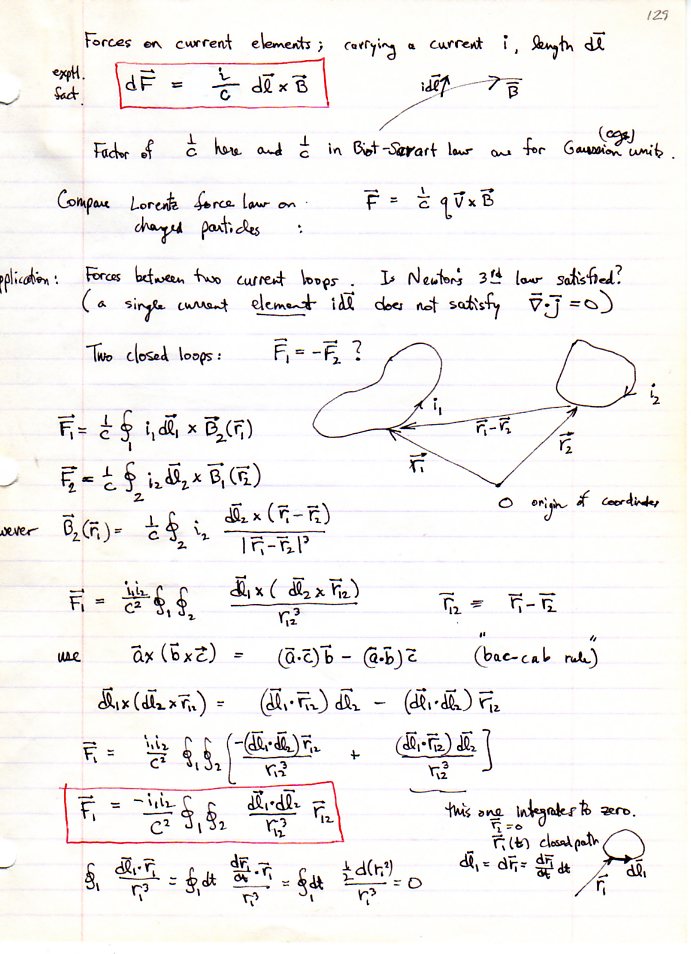 129
Forces on current elements; carrying a current i, length dl⃗
exptl. fact. dF⃗ = i/c dl⃗ × B⃗
idl⃗ B⃗
Factor of 1/c here and 1/c in Biot-Savart law are for Gaussian (cgs) units.
Compare Lorentz force law on F⃗ = 1/c q v⃗ × B⃗
charged particles :
pplication: Forces between two current loops. Is Newton's 3rd law satisfied?
(a single current element idl⃗ does not satisfy ∇⃗·J⃗ = 0)
Two closed loops: F⃗₁ = -F⃗₂ ?
i₁ i₂
r⃗₁-r⃗₂
r⃗₁ r⃗₂
O origin of coordinates
F⃗₁ = 1/c ∮₁ i₁dl⃗₁ × B⃗₂(r⃗₁)
F⃗₂ = 1/c ∮₂ i₂dl⃗₂ × B⃗₁(r⃗₂)
wever B⃗₂(r⃗₁) = 1/c ∮₂ i₂ dl⃗₂ × (r⃗₁-r⃗₂) / |r⃗₁-r⃗₂|³
F⃗₁ = i₁i₂/c² ∮₁∮₂ dl⃗₁×(dl⃗₂×r⃗₁₂) / r₁₂³ r⃗₁₂ ≡ r⃗₁-r⃗₂
use a⃗×(b⃗×c⃗) = (a⃗·c⃗)b⃗ - (a⃗·b⃗)c⃗ ("bac-cab rule")
dl⃗₁×(dl⃗₂×r⃗₁₂) = (dl⃗₁·r⃗₁₂)dl⃗₂ - (dl⃗₁·dl⃗₂)r⃗₁₂
F⃗₁ = i₁i₂/c² ∮₁∮₂ [-(dl⃗₁·dl⃗₂)r⃗₁₂ / r₁₂³ + (dl⃗₁·r⃗₁₂)dl⃗₂ / r₁₂³]
F⃗₁ = -i₁i₂/c² ∮₁∮₂ dl⃗₁·dl⃗₂ / r₁₂³ r⃗₁₂
this one integrates to zero.
r⃗₂=0
r⃗₁(t) closed path
dl⃗₁ = dr⃗₁ = dr⃗₁/dt dt
r⃗₁ dl⃗₁
∮₁ dl⃗₁·r⃗₁ / r₁³ = ∮dt (dr⃗₁/dt · r⃗₁) / r₁³ = ∮dt ½d(r₁²) / r₁³ = 0